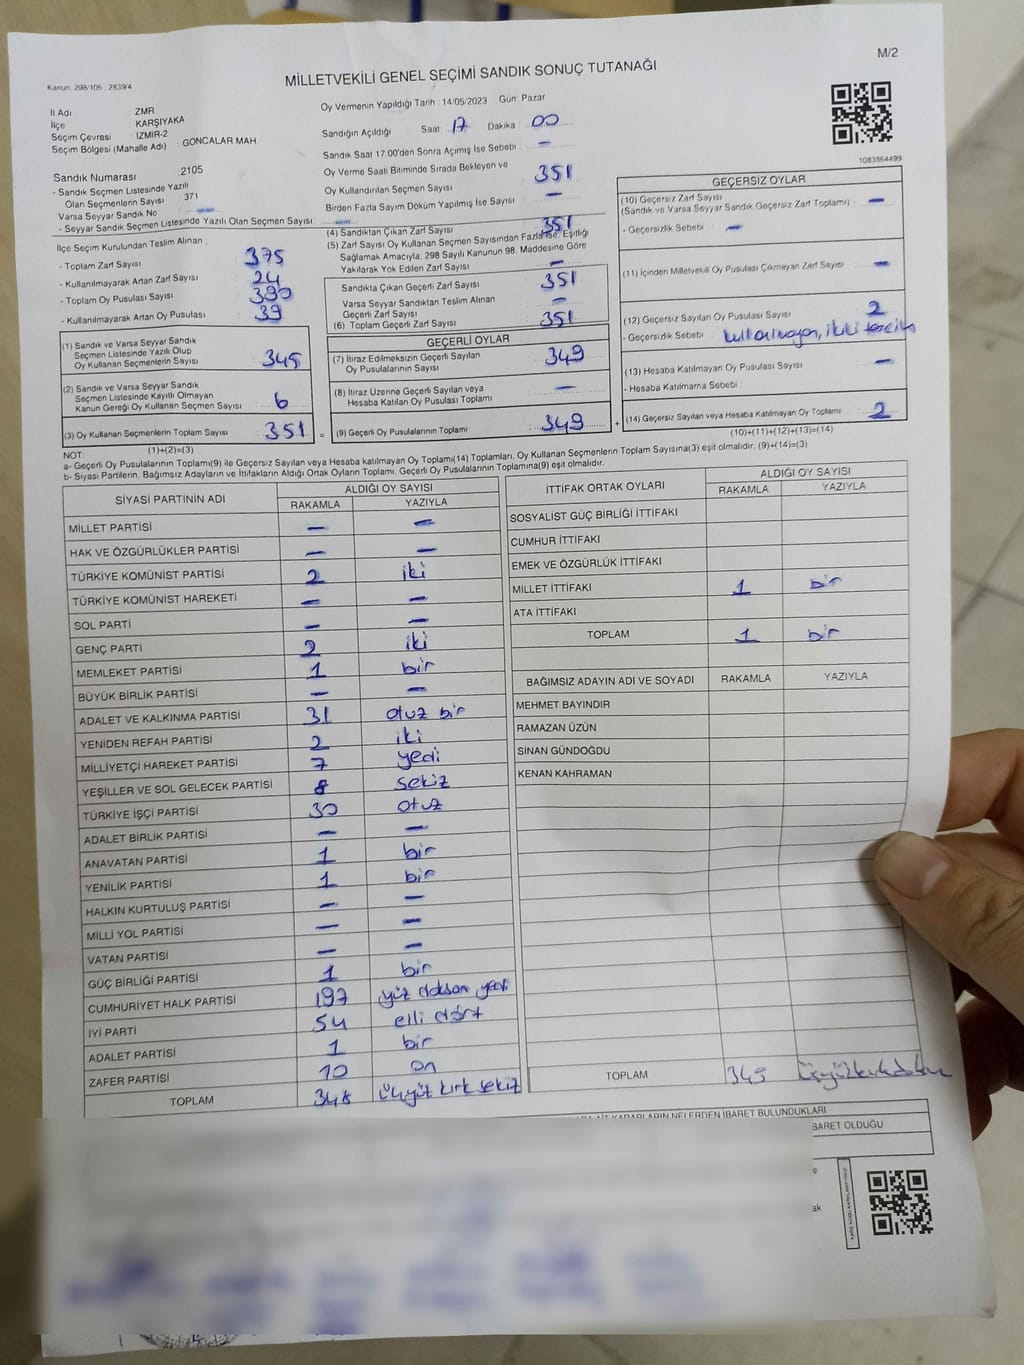 M/2
MİLLETVEKİLİ GENEL SEÇİMİ SANDIK SONUÇ TUTANAĞI
Kanun: 298/105 . 2839/4
İl Adı : ZMR
İlçe : KARŞIYAKA
Seçim Çevresi : İZMİR-2
Seçim Bölgesi (Mahalle Adı) : GONCALAR MAH
Oy Vermenin Yapıldığı Tarih : 14/05/2023 Gün: Pazar
Sandığın Açıldığı Saat : 17 Dakika : 00
Sandık Saat 17:00'den Sonra Açılmış İse Sebebi : —
Oy Verme Saati Bitiminde Sırada Bekleyen ve
Oy Kullandırılan Seçmen Sayısı : 351
Birden Fazla Sayım Döküm Yapılmış İse Sayısı : —
1083864499
Sandık Numarası : 2105
- Sandık Seçmen Listesinde Yazılı
Olan Seçmenlerin Sayısı : 371
Varsa Seyyar Sandık No : —
- Seyyar Sandık Seçmen Listesinde Yazılı Olan Seçmen Sayısı : —
İlçe Seçim Kurulundan Teslim Alınan ;
- Toplam Zarf Sayısı : 375
- Kullanılmayarak Artan Zarf Sayısı : 24
- Toplam Oy Pusulası Sayısı : 390
- Kullanılmayarak Artan Oy Pusulası : 39
(1) Sandık ve Varsa Seyyar Sandık
Seçmen Listesinde Yazılı Olup
Oy Kullanan Seçmenlerin Sayısı : 345
(2) Sandık ve Varsa Seyyar Sandık
Seçmen Listesinde Kayıtlı Olmayan
Kanun Gereği Oy Kullanan Seçmen Sayısı : 6
(3) Oy Kullanan Seçmenlerin Toplam Sayısı : 351
(1)+(2)=(3)
(4) Sandıktan Çıkan Zarf Sayısı : 351
(5) Zarf Sayısı Oy Kullanan Seçmen Sayısından Fazla ise, Eşitliği
Sağlamak Amacıyla, 298 Sayılı Kanunun 98. Maddesine Göre
Yakılarak Yok Edilen Zarf Sayısı : —
Sandıkta Çıkan Geçerli Zarf Sayısı : 351
Varsa Seyyar Sandıktan Teslim Alınan
Geçerli Zarf Sayısı : —
(6) Toplam Geçerli Zarf Sayısı : 351
GEÇERLİ OYLAR
(7) İtiraz Edilmeksizin Geçerli Sayılan
Oy Pusulalarının Sayısı : 349
(8) İtiraz Üzerine Geçerli Sayılan veya
Hesaba Katılan Oy Pusulası Toplamı : —
= (9) Geçerli Oy Pusulalarının Toplamı : 349 +
GEÇERSİZ OYLAR
(10) Geçersiz Zarf Sayısı : —
(Sandık ve Varsa Seyyar Sandık Geçersiz Zarf Toplamı)
- Geçersizlik Sebebi : —
(11) İçinden Milletvekili Oy Pusulası Çıkmayan Zarf Sayısı : —
(12) Geçersiz Sayılan Oy Pusulası Sayısı : 2
- Geçersizlik Sebebi : kullanılmayan, ikili tercih
(13) Hesaba Katılmayan Oy Pusulası Sayısı : —
- Hesaba Katılmama Sebebi :
(14) Geçersiz Sayılan veya Hesaba Katılmayan Oy Toplamı : 2
(10)+(11)+(12)+(13)=(14)
NOT:
a- Geçerli Oy Pusulalarının Toplamı(9) ile Geçersiz Sayılan veya Hesaba katılmayan Oy Toplamı(14) Toplamları, Oy Kullanan Seçmenlerin Toplam Sayısına(3) eşit olmalıdır. (9)+(14)=(3)
b- Siyasi Partilerin, Bağımsız Adayların ve İttifakların Aldığı Oyların Toplamı, Geçerli Oy Pusulalarının Toplamına(9) eşit olmalıdır.
SİYASİ PARTİNİN ADI ALDIĞI OY SAYISI
RAKAMLA YAZIYLA
MİLLET PARTİSİ — —
HAK VE ÖZGÜRLÜKLER PARTİSİ — —
TÜRKİYE KOMÜNİST PARTİSİ 2 iki
TÜRKİYE KOMÜNİST HAREKETİ — —
SOL PARTİ — —
GENÇ PARTİ 2 iki
MEMLEKET PARTİSİ 1 bir
BÜYÜK BİRLİK PARTİSİ — —
ADALET VE KALKINMA PARTİSİ 31 otuz bir
YENİDEN REFAH PARTİSİ 2 iki
MİLLİYETÇİ HAREKET PARTİSİ 7 yedi
YEŞİLLER VE SOL GELECEK PARTİSİ 8 sekiz
TÜRKİYE İŞÇİ PARTİSİ 30 otuz
ADALET BİRLİK PARTİSİ — —
ANAVATAN PARTİSİ 1 bir
YENİLİK PARTİSİ 1 bir
HALKIN KURTULUŞ PARTİSİ — —
MİLLİ YOL PARTİSİ — —
VATAN PARTİSİ — —
GÜÇ BİRLİĞİ PARTİSİ 1 bir
CUMHURİYET HALK PARTİSİ 197 yüz doksan yedi
İYİ PARTİ 54 elli dört
ADALET PARTİSİ 1 bir
ZAFER PARTİSİ 10 on
TOPLAM 348 üçyüz kırk sekiz
İTTİFAK ORTAK OYLARI ALDIĞI OY SAYISI
RAKAMLA YAZIYLA
SOSYALİST GÜÇ BİRLİĞİ İTTİFAKI
CUMHUR İTTİFAKI
EMEK VE ÖZGÜRLÜK İTTİFAKI
MİLLET İTTİFAKI 1 bir
ATA İTTİFAKI
TOPLAM 1 bir
BAĞIMSIZ ADAYIN ADI VE SOYADI RAKAMLA YAZIYLA
MEHMET BAYINDIR
RAMAZAN ÜZÜN
SİNAN GÜNDOĞDU
KENAN KAHRAMAN
TOPLAM 349 üçyüzkırkdokuz
KARARLARIN NELERDEN İBARET BULUNDUKLARI
BARET OLDUĞU
ak